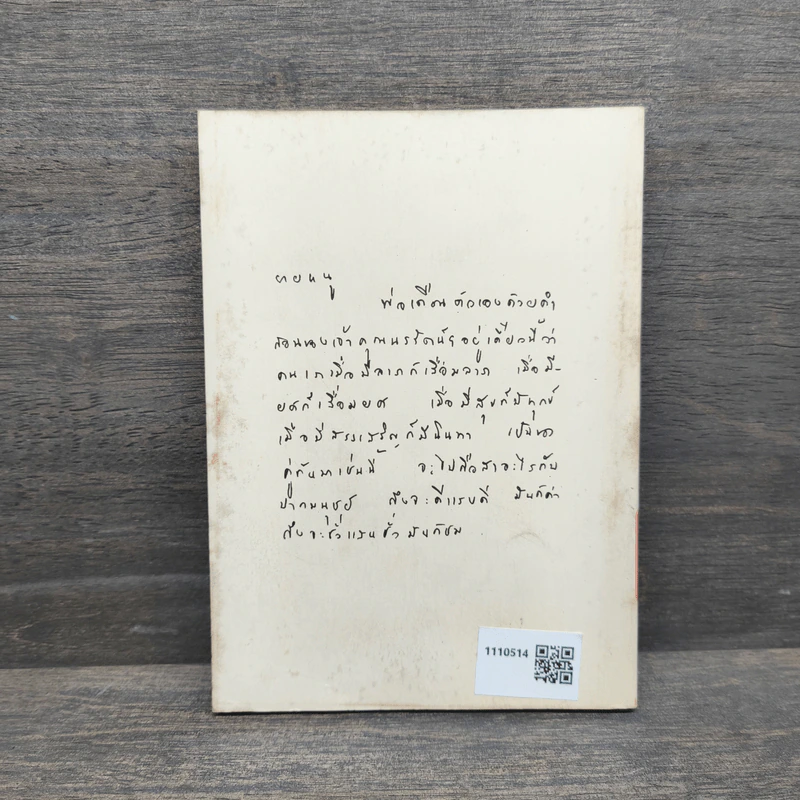 ยายหนู
พ่อเตือนตัวเองด้วยคำ
สอนของเจ้าคุณนรรัตน์ฯอยู่เดี๋ยวนี้ว่า
คนเราเมื่อมีลาภก็เสื่อมลาภ เมื่อมี-
ยศก็เสื่อมยศ เมื่อมีสุขก็มีทุกข์
เมื่อมีสรรเสริญก็มีนินทา เป็นของ
คู่กันมาเช่นนี้ จะไปถือสาอะไรกับ
ปากมนุษย์ ถึงจะดีแสนดี มันก็ด่า
ถึงจะชั่วแสนชั่ว มันก็ชม
1110514